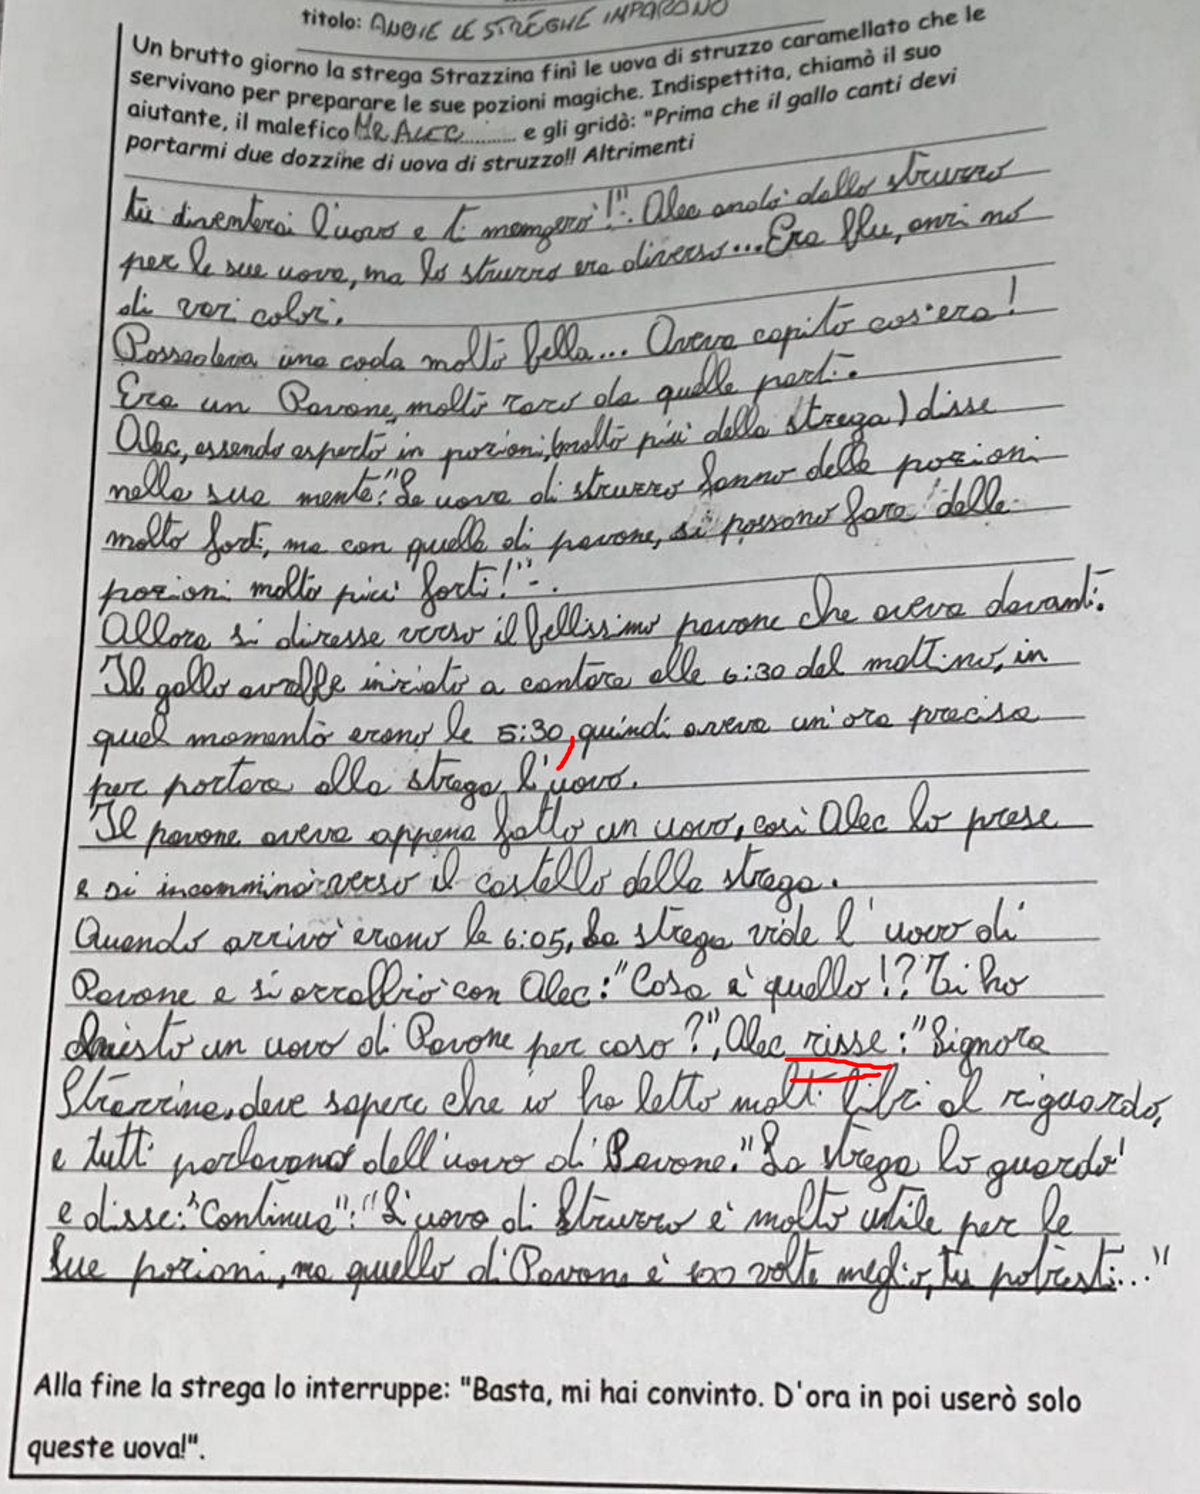 titolo: ANCHE LE STREGHE IMPARANO
Un brutto giorno la strega Strazzina finì le uova di struzzo caramellato che le
servivano per preparare le sue pozioni magiche. Indispettita, chiamò il suo
aiutante, il malefico MR ALEC.......... e gli gridò: "Prima che il gallo canti devi
portarmi due dozzine di uova di struzzo!! Altrimenti
tu diventerai l'uovo e ti mangerò!!". Alec andò dallo struzzo
per le sue uova, ma lo struzzo era diverso... Era blu, anzi no
di vari colori.
Possedeva una coda molto bella... Aveva capito cos'era!
Era un Pavone, molto raro da quelle parti.
Alec, essendo esperto in pozioni, (molto più della strega) disse
nella sua mente: "Le uova di struzzo fanno delle pozioni
molto forti, ma con quelle di pavone, si possono fare delle
pozioni molto più forti!".
Allora si diresse verso il bellissimo pavone che aveva davanti.
Il gallo avrebbe iniziato a cantare alle 6:30 del mattino, in
quel momento erano le 5:30, quindi aveva un'ora precisa
per portare alla strega l'uovo.
Il pavone aveva appena fatto un uovo, così Alec lo prese
e si incamminò verso il castello della strega.
Quando arrivò erano le 6:05, La strega vide l'uovo di
Pavone e si arrabbiò con Alec: "Cosa è quello!? Ti ho
chiesto un uovo di Pavone per caso?", Alec risse: "Signora
Strazzina, deve sapere che io ho letto molti libri al riguardo,
e tutti parlavano dell'uovo di Pavone." La strega lo guardò
e disse: "Continua": "L'uovo di Struzzo è molto utile per le
Sue pozioni, ma quello di Pavone è 100 volte meglio, tu potresti..."
Alla fine la strega lo interruppe: "Basta, mi hai convinto. D'ora in poi userò solo
queste uova!".